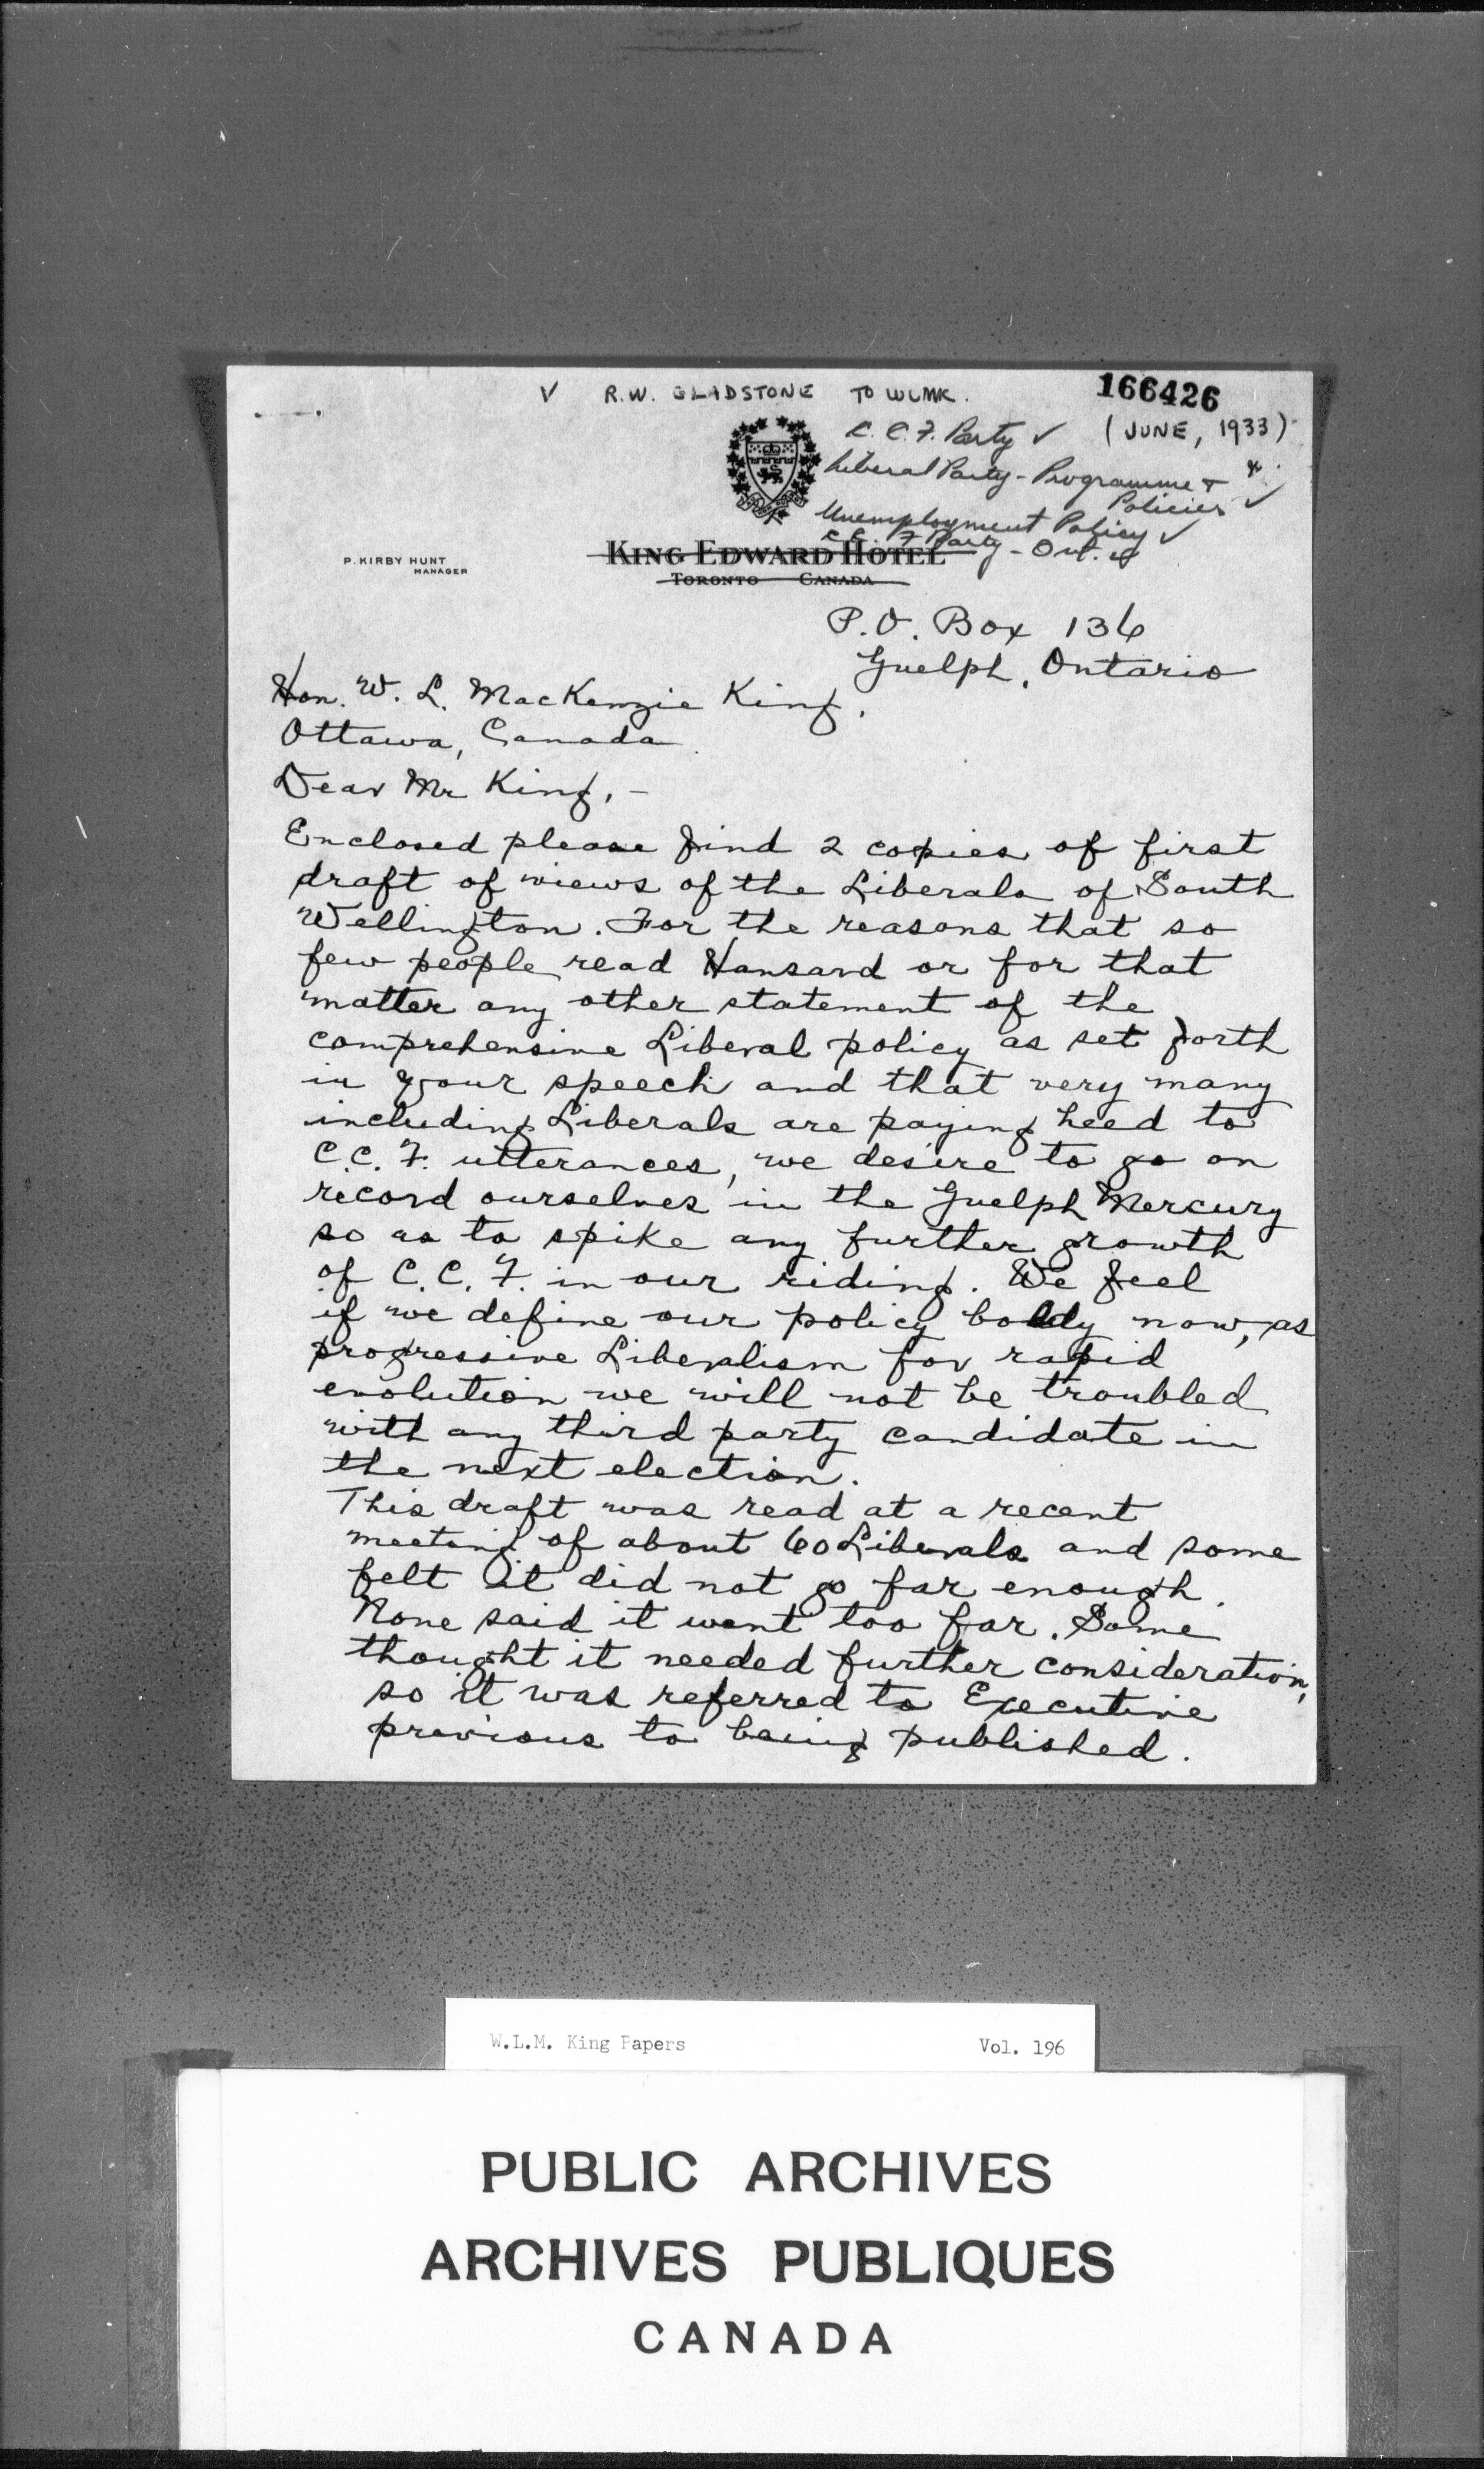 V R.W. GLADSTONE TO WLMK.
166426
(JUNE, 1933)
C.C.F. Party ✓
Liberal Party - Programme +
Policies ✓
Unemployment Policy ✓
C.C.F Party - Ont.
P. KIRBY HUNT
MANAGER
KING EDWARD HOTEL
TORONTO CANADA
P.O. Box 136
Guelph, Ontario
Hon. W. L. MacKenzie King,
Ottawa, Canada.
Dear Mr King, -
Enclosed please find 2 copies of first
draft of views of the Liberals of South
Wellington. For the reasons that so
few people read Hansard or for that
matter any other statement of the
comprehensive Liberal policy as set forth
in your speech and that very many
including Liberals are paying heed to
C.C.F. utterances, we desire to go on
record ourselves in the Guelph Mercury
so as to spike any further growth
of C.C.F. in our riding. We feel
if we define our policy boldy now, as
progressive Liberalism for rapid
evolution we will not be troubled
with any third party candidate in
the next election.
This draft was read at a recent
meeting of about 60 Liberals and some
felt it did not go far enough.
None said it went too far. Some
thought it needed further consideration,
so it was referred to Executive
previous to being published.
W.L.M. King Papers
Vol. 196
PUBLIC ARCHIVES
ARCHIVES PUBLIQUES
CANADA